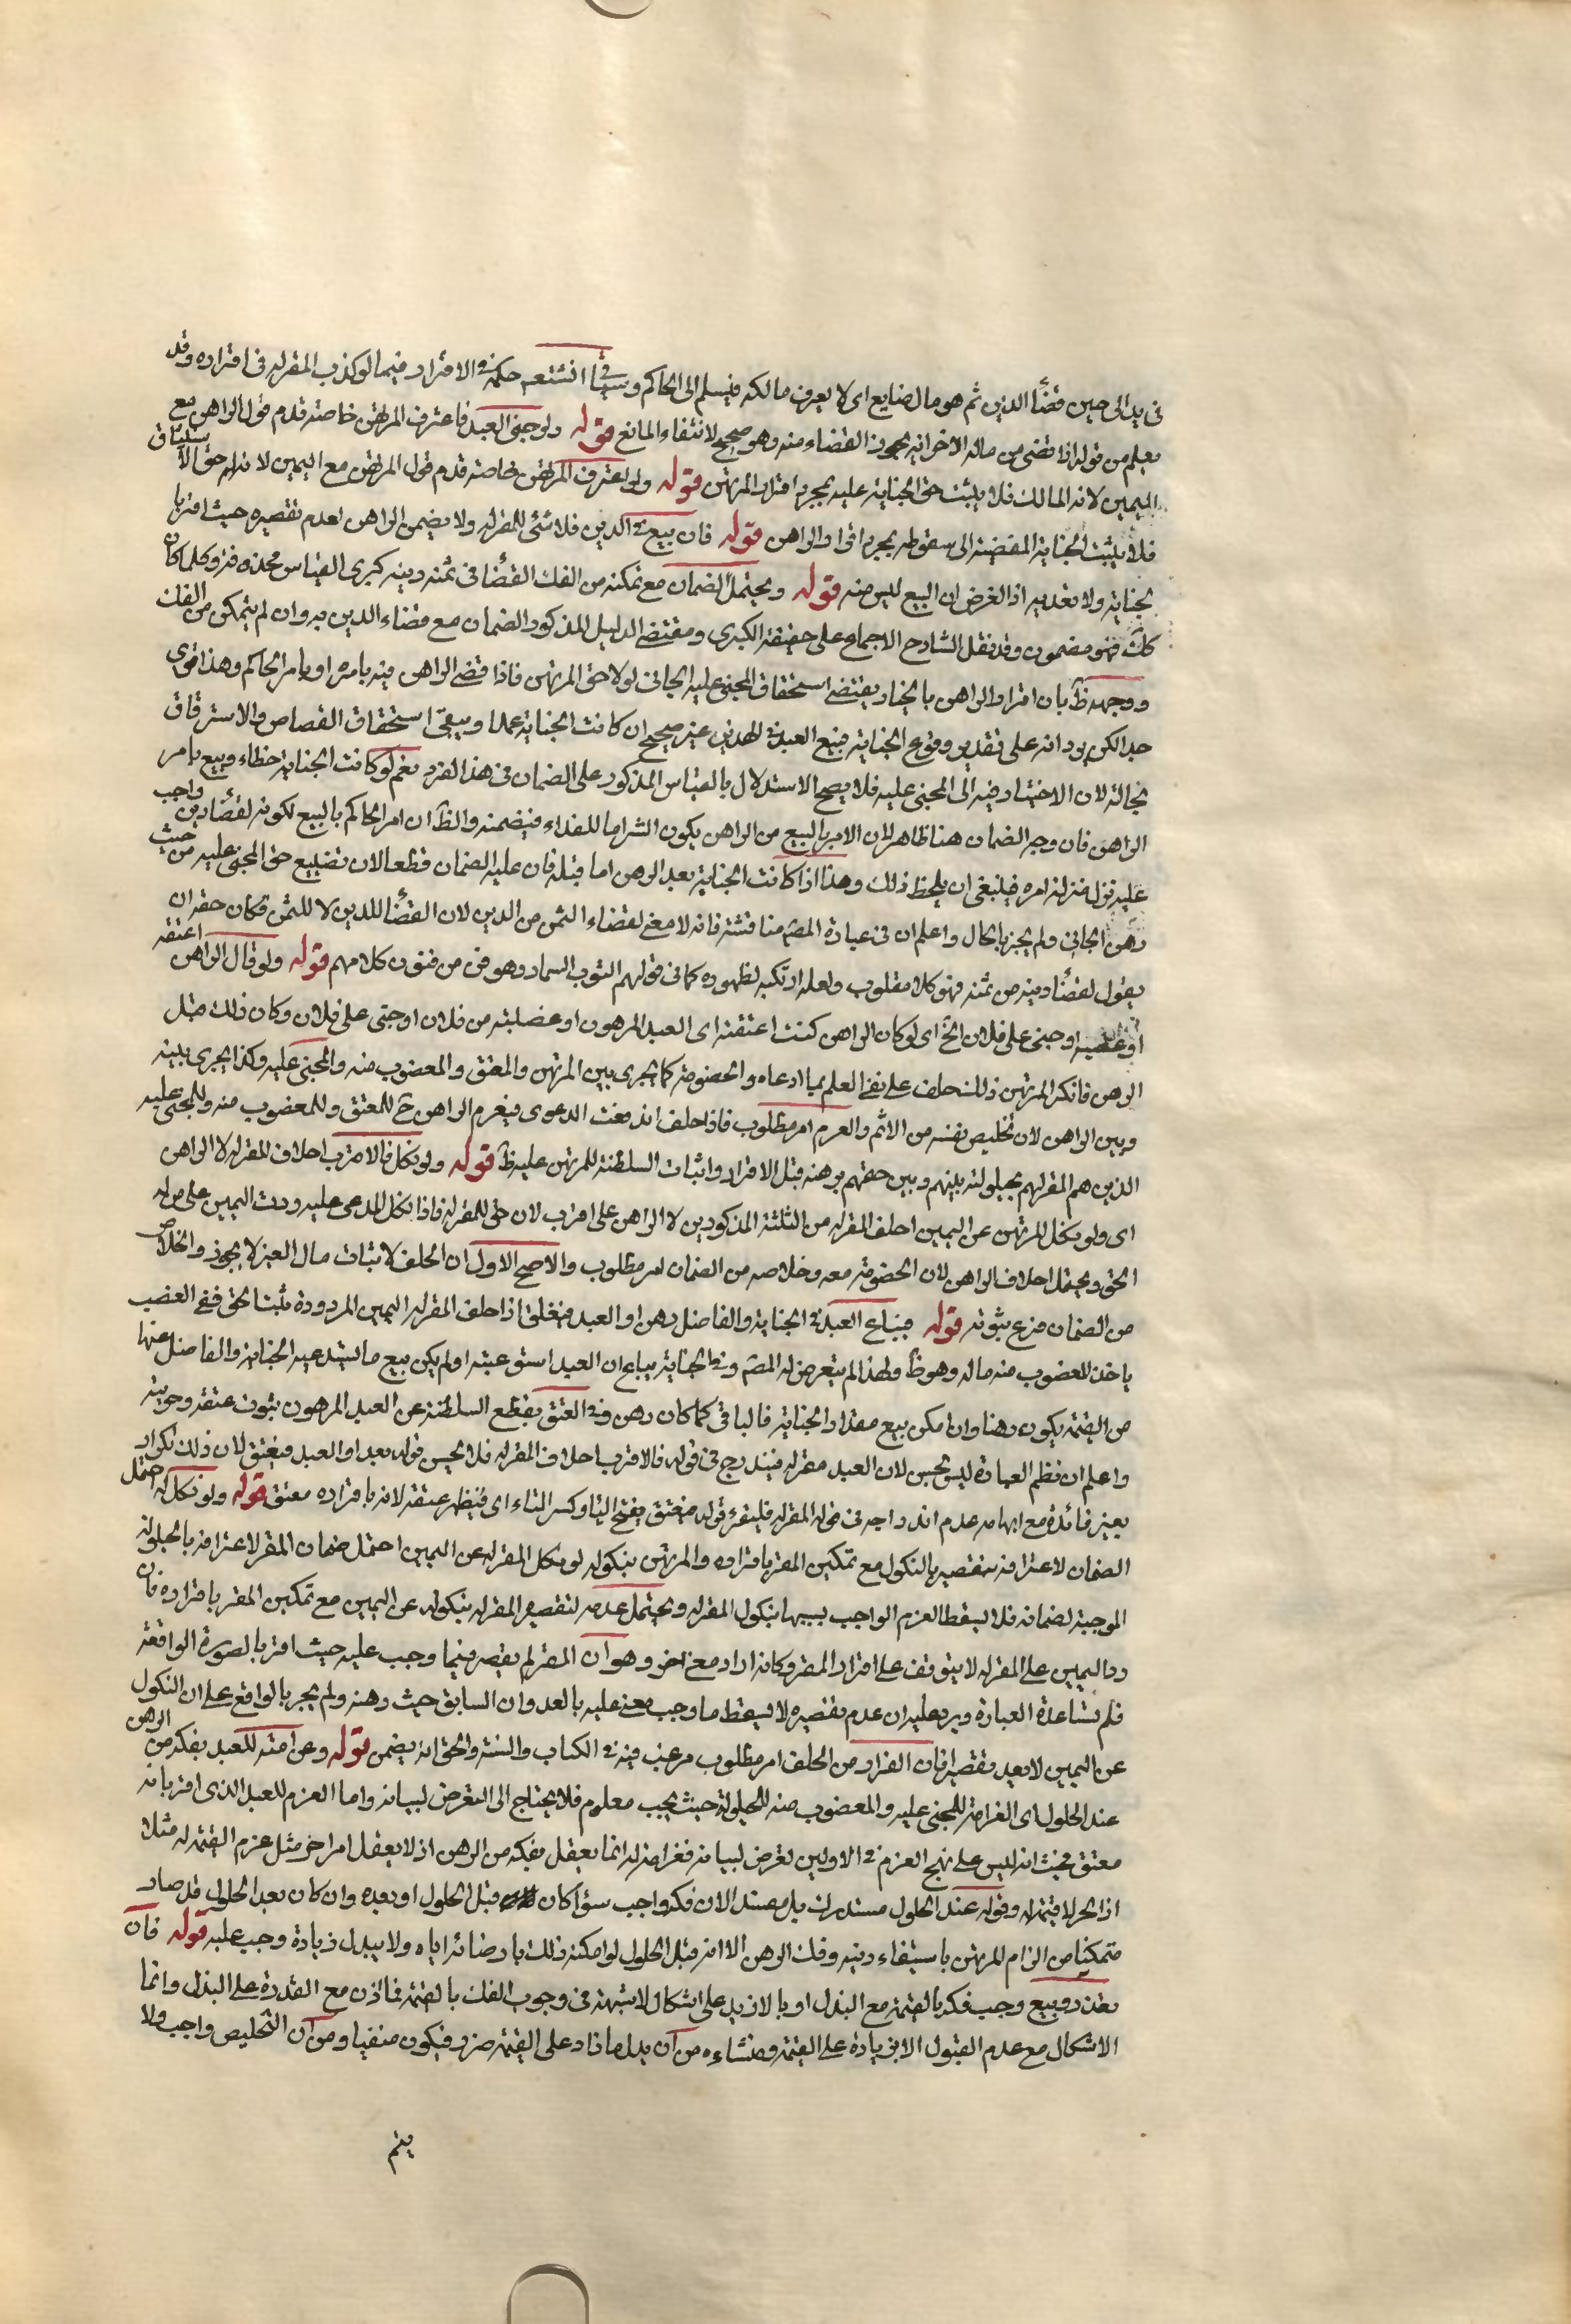 في يده الى حين قضاء الدين ثم هو مال ضايع اى لا يعرف مالكه فيسلم الى الحاكم وسيأتي انشتعم حكمه في الاقرار فيما لو كذب المقر له في اقراره وقد
يعلم من قوله اذا قضى من ماله الاخر انه يجوز القضاء منه وهو صحيح لانتفاء المانع قوله ولو جنى العبد فاعترف المرتهن خاصته قدم قول الراهن مع
اليمين لانه المالك فلا يثبت حق الجناية عليه بمجرد اقرار المرتهن قوله ولو اعترف الراهن خاصة قدم قول المرتهن مع اليمين لانه له حق الاستيثاق
فلا يثبت الجناية المفضية الى سقوطه بمجرد اقرار الراهن قوله فان بيع في الدين فلا شئ للمقر له ولا يضمن الراهن لعدم تقصيره حيث اقر با
لجناية ولا تعديه اذ الغرض ان البيع ليس منه قوله ويحتمل الضمان مع تمكنه من الفك القضا في ثمنه دينه كبرى القياس محذوفة وكلما كان
كك فهو مضمون وقد نقل الشارح الاجماع على حقيقة الكبرى ومقتضى الدليل المذكور الضمان مع قضاء الدين به وان لم يتمكن من الفك
ووجهه ظ بان اقرار الراهن بالجناية يقتضى استحقاق المجنى عليه الجانى لولا حق المرتهن فاذا قضى الراهن فيه بامره او بامر الحاكم وهذا قوى
جدا لكن يرد انه على تقدير وقوع الجناية فبيع العبد في الدين غير صحيح ان كانت الجناية عمدا ويبقى استحقاق القصاص والاسترقاق
بحاله لان الاختيار فيه الى المجنى عليه فلا يصح الاستدلال بالقياس المذكور على الضمان في هذا الفرد نعم لو كانت الجناية خطاء وبيع بامر
الراهن فان وجه الضمان هنا ظاهر لان الامر بالبيع من الراهن يكون التزاما للفداء فيضمنه والظ ان امر الحاكم بالبيع لكونه لقضاء دين واجب
عليه نزل منزلة امره فينبغى ان يلحظ ذلك وهذا اذا كانت الجناية بعد الرهن اما قبله فان عليه الضمان قطعا لان تضييع حق المجنى عليه من حيث
رهن الجانى ولم يجز بالحال واعلم ان في عبارة المصم مناقشة فانه لا معنى لقضاء الثمن من الدين لان القضا للدين لا للثمن فكان حقه ان
يقول لقضاء دينه من ثمنه فهو كلام مقلوب ولعله ارتكبه لظهوره كما في قولهم الثوب السمار وهو فن من فنون كلامهم قوله ولو قال الراهن اعتقته
او غصبته او جنى على فلان الخ اى لو كان الراهن كنت اعتقته اى العبد المرهون او غصبته من فلان او جنى على فلان وكان ذلك قبل
الرهن فانكر المرتهن ذلك حلف على نفى العلم بما ادعاه والخصومة كما يجرى بين المرتهن والمعتق والمغصوب منه والمجنى عليه وكذا يجرى بينه
وبين الراهن لان تخليص نفسه من الاثم والغرم امر مطلوب فاذا حلف اندفعت الدعوى فيغرم الراهن ح للمعتق وللمغصوب منه وللمجنى عليه
الذين هم المقر لهم بحيلولته بينهم وبين حقهم برهنه قبل الاقرار واثبات السلطنة للمرتهن عليه ظ قوله ولو نكل فالاقرب احلاف المقر له لا الراهن
اى ولو نكل المرتهن عن اليمين احلف المقر له من الثلثة المذكورين لا الراهن على اقرب لان حق للمقر له فاذا نكل المدعى عليه ردت اليمين على من له
الحق ويحتمل احلاف الراهن لان الخصومة معه وخلاصه من الضمان امر مطلوب والاصح الاول ان الحلف لاثبات مال الغير لا يجوز والخلاص
من الضمان فرع ثبوته قوله فيباع العبد في الجناية والفاضل رهن او العبد فيعتق اذا حلف المقر له اليمين المردودة يثبت الحق ففى الغصب
ياخذ المغصوب منه ماله وهو ظ ولهذا لم يتعرض له المصم وفي الجناية يباع ان العبد استوعبته او لم يكن بيع ما يستدعيه الجناية والفاضل عنها
من القيمة يكون رهنا وان امكن بيع مقدار الجناية فالباقى كما كان رهن وفي العتق يقطع السلطنة عن العبد المرهون بثبوت عتقه وحريته
واعلم ان نظم العبارة ليس بحسن لان العبد مقر له فيندرج في قوله فالاقرب احلاف المقر له فلا يحسن قوله بعد او العبد فيعتق لان ذلك تكرار
بغير فائدة مع ايهامه عدم اندراجه في قوله المقر له فليقرء قوله فيعتق بفتح اليا وكسر التاء اى فيظهر عتقه لانه باقراره معتق قوله ولو نكل له احتمل
الضمان لاعترافه بتقصيره بالنكول مع تمكين المقر باقراره والمرتهن بنكوله لو نكل المقر له عن اليمين احتمل ضمان المقر لاعترافه بالحيلولة
الموجبة لضمانه فلا يسقط الغرم الواجب بسببها بنكول المقر له ويحتمل عدمه لتقصير المقر له بنكوله عن اليمين مع تمكين المقر باقراره فان
رد اليمين على المقر له لا يتوقف على اقرار المقر وكانه اراد معنى اخر وهو ان المقر لم يقصر فيما وجب عليه حيث اقر بالصورة الواقعة
فلم تساعده العبارة ويرد عليه ان عدم تقصيره لا يسقط ما وجب معه عليه بالعدوان السابق حيث رهنه ولم يجز بالواقع على ان النكول
عن اليمين لا يعد تقصيرا فان الفرار من الحلف امر مطلوب مرغب فيه في الكتاب والسنة والحق انه يضمن قوله وعن امته للعبد بفكه من الرهن
عند الحلول اى الغرامة للمجنى عليه والمغصوب منه للحيلولة حيث يجب معلوم فلا يحتاج الى التعرض لبيانه واما الغرم للعبد الذى اقر بانه
معتق فحيث انه ليس على نهج الغرم في الاولين تعرض لبيانه فغرامته له انما يعقل بفكه من الرهن اذ لا يعقل امر اخر مثل غرم القيمة له مثلا
اذ الحر لا قيمة له وقوله عند الحلول مستدرك بل مفسد لان فكه واجب سواء كان قبل الحلول او بعده وان كان بعد الحلول قد صار
متمكنا من الزام المرتهن باستيفاء دينه وفك الرهن الا انه قبل الحلول لو امكنه ذلك بارضائه اياه ولا ببدل زيادة وجب عليه قوله فان
تعذر وبيع وجب فكه بالقيمة مع البذل او بالازيد على اشكال لا شبهة في وجوب الفك بالقيمة فما دون مع القدرة على البذل وانما
الاشكال مع عدم القبول الا بزيادة على القيمة ومنشاءه من ان بدل ما زاد على القيمة ضرر فيكون منفيا ومن ان التخليص واجب ولا
يتم